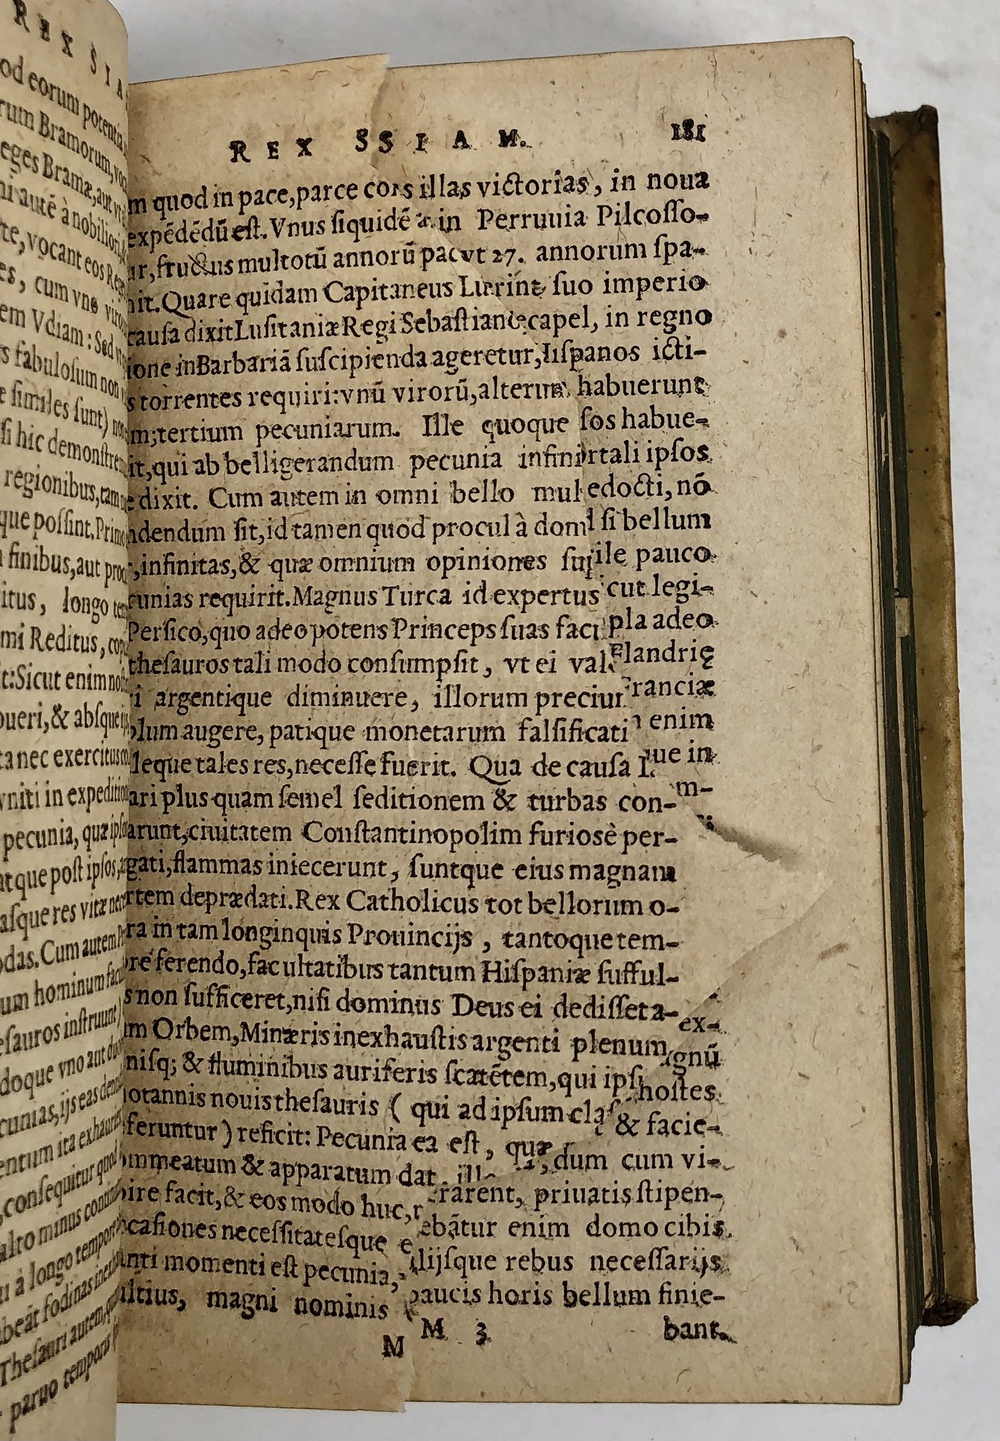 REX SIA
od eorum potentia
rum Bramorum, voc
eges Bramæ, aut
ni autē à nobiliori
te, vocant eos Reg
es, cum vno viro
em Vdiam: Sed
s fabulosum non
e similes sunt) non
si hic demonstre
regionibus, tam
que possint. Princ
finibus, aut proc
itus, longo tem
mi Reditus, cop
t: Sicut enim nos
oueri, & absque
ta nec exercitus
vniti in expeditio
pecunia, quæ ipso
at que post ipsos,
asque res vitæ nec
odas. Cum autem
um hominum facul
esauros instruunt
doque vno aut du
cunias, ijs eas
entum ita exhauri
, consequitur quod
alto minus contin
u à longo tempor
beāt fodinas
Thesauri autem,
paruo tempori
REX SSIAM. 181
m quod in pace, parce co rs illas victorias, in noua
expēdēdū est. Vnus siquidē in Perruuia Pilcosso-
ar, fructus multotū annorū pac vt 27. annorum spa-
nit. Quare quidam Capitaneus Lu rine suo imperio
causa dixit Lusitaniæ Regi Sebastian capel, in regno
ione in Barbariā suscipienda ageretur, Iispanos icti-
s torrentes requiri: vnū virorū, alterum habuerunt
m; tertium pecuniarum. Ille quoque sos habue-
it, qui ab belligerandum pecunia infini rtali ipsos
e dixit. Cum autem in omni bello mul edocti, nō
ndendum sit, id tamen quod procul à dom l si bellum
, infinitas, & quæ omnium opiniones sup ile pauco
cunias requirit. Magnus Turca id expertus cut legi-
Persico, quo adeo potens Princeps suas faci pla adeo
thesauros tali modo consumpsit, vt ei val Flandrię
i argentique diminuere, illorum preciu Franciæ
olum augere, patique monetarum falsificati enim
leque tales res, necesse fuerit. Qua de causa I ue in
ari plus quam semel seditionem & turbas con- m-
arunt, ciuitatem Constantinopolim furiosè per-
gati, flammas iniecerunt, suntque eius magnam
rtem deprædati. Rex Catholicus tot bellorum o-
ra in tam longinquis Prouincijs, tantoque tem-
re ferendo, facultatibus tantum Hispaniæ sufful-
s non sufficeret, nisi dominus Deus ei dedisset a-
m Orbem, Minæris inexhaustis argenti plenum, ex-
nisq; & fluminibus auriferis scatētem, qui ips gnū
otannis nouis thesauris ( qui ad ipsum cla hostes
feruntur ) reficit: Pecunia ea est, quæ & facie-
ommeatum & apparatum dat, ill dum cum vi-
ire facit, & eos modo huc, r rarent, priuatis stipen-
casiones necessitatesque e ebātur enim domo cibis
nti momenti est pecunia, lijsque rebus necessarijs
ltius, magni nominis paucis horis bellum finie-
M M 3 bant